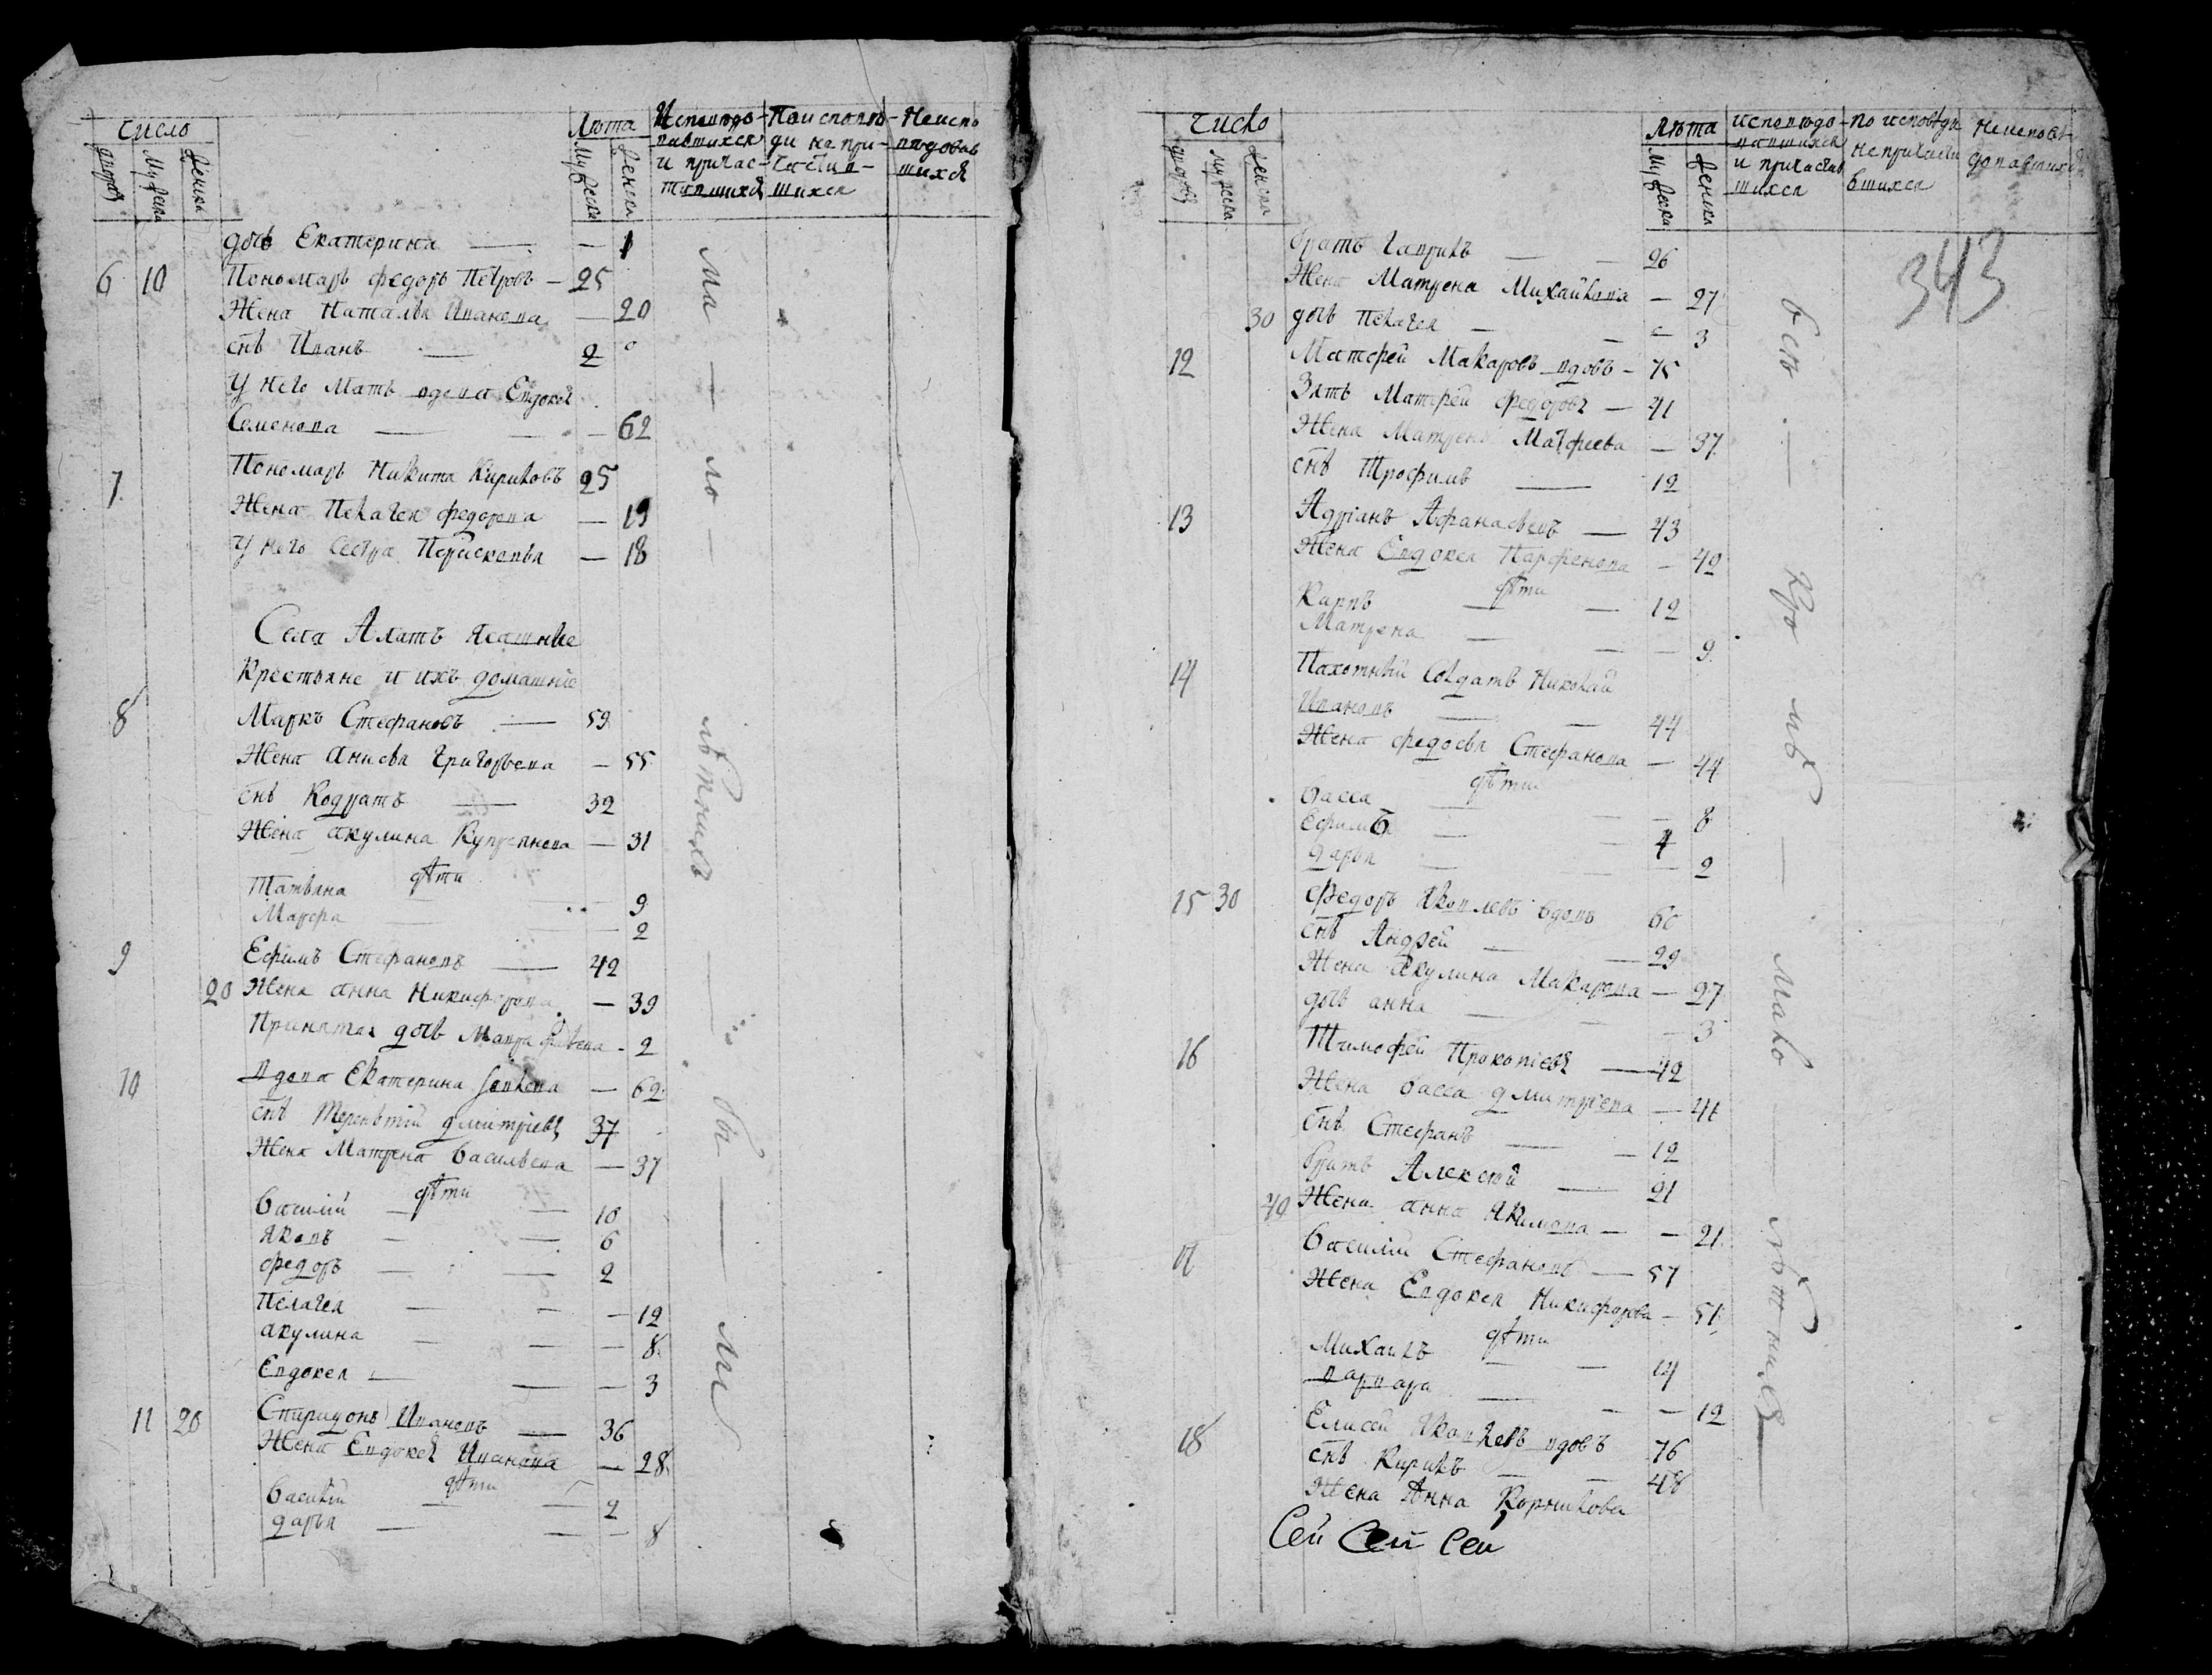 Число
дворовъ
Мужеска
Женска
Лѣта
Мужеска
Женска
Исповѣдо-
вавшихся
и причас-
тившихся
По исповѣ-
ди не при-
частив-
шихся
Неиспо
вѣдовав
шихся
дочь Екатерина — — 1
6 10 Пономарь Федоръ Петровъ — 25
Жена Наталья Иванова — 20
снъ Иванъ — 2
У него мать вдова Евдокея
Семенова — — — 62
7 Пономарь Никита Кириловъ 25
Жена Пелагея Федорова — 19
У него сестра Параскевья — 18
Села Алатъ ясашные
Крестьяне и ихъ домашніе
8 Маркъ Стефановъ — 59
Жена Анисья Григорьева — 55
снъ Кодратъ — 32
Жена Акулина Купреянова — 31
дѣти
Татьяна — 9
Марфа — 2
9 Ефимъ Стефановъ — 42
20 Жена Анна Никифорова — 39
Принятая дочь Мавра — 2
10 вдова Екатерина — 62
снъ Терентій Дмитріевъ 37
Жена Матрена Васильева — 37
дѣти
Василій — — 10
Яковъ — — 6
Федоръ — — 2
Пелагея — — — 12
Акулина — — — 8
Евдокея — — — 3
11 20 Спиридонъ Ивановъ — 36
Жена Евдокея Иванова — 28
дѣти
Василій — — 2
Дарья — — — 8
ма — ло — лѣтнихъ — бы — ли
Число
дворовъ
Мужеска
Женска
Лѣта
Мужеска
Женска
Исповѣдо-
вавшихся
и причастив
шихся
По исповѣди
не причасти
вшихся
Неисповѣ-
довавшихся
343
братъ Гаврилъ — — 26
Жена Матрена Михайлова — 27
30 дочь Пелагея — — — 3
12 Матфей Макаровъ вдовъ — 75
Зять Матфей Федоровъ — 41
Жена Матрена Матфеева — 37
снъ Трофимъ — 12
13 Адріанъ Афанасьевъ — 43
Жена Евдокея Парфенова — 42
дѣти
Карпъ — — 12
Матрена — — — 9
14 Пахотный солдатъ Николай
Ивановъ — — 44
Жена Федосья Стефанова — 44
дѣти
Васса — — — 8
Ефимъ — — 4
Дарья — — — 2
15 30 Федоръ Яковлевъ вдовъ 60
снъ Андрей — — 29
Жена Акулина Макарова — 27
дочь Анна — — — 3
16 Тимофей Прокопіевъ — 42
Жена Васса Дмитріева — 41
снъ Стефанъ — — 12
братъ Алексѣй — 21
40 Жена Анна Якимова — — 21
17 Василій Стефановъ — 57
Жена Евдокея Никифорова — 51
дѣти
Михаилъ — — 14
Варвара — — — 12
18 Елисей Яковлевъ вдовъ 76
снъ Кирилъ — — 48
Жена Анна Корнилова
Сей Сей Сей
всѣ — кро мѣ — мало — лѣтнихъ —